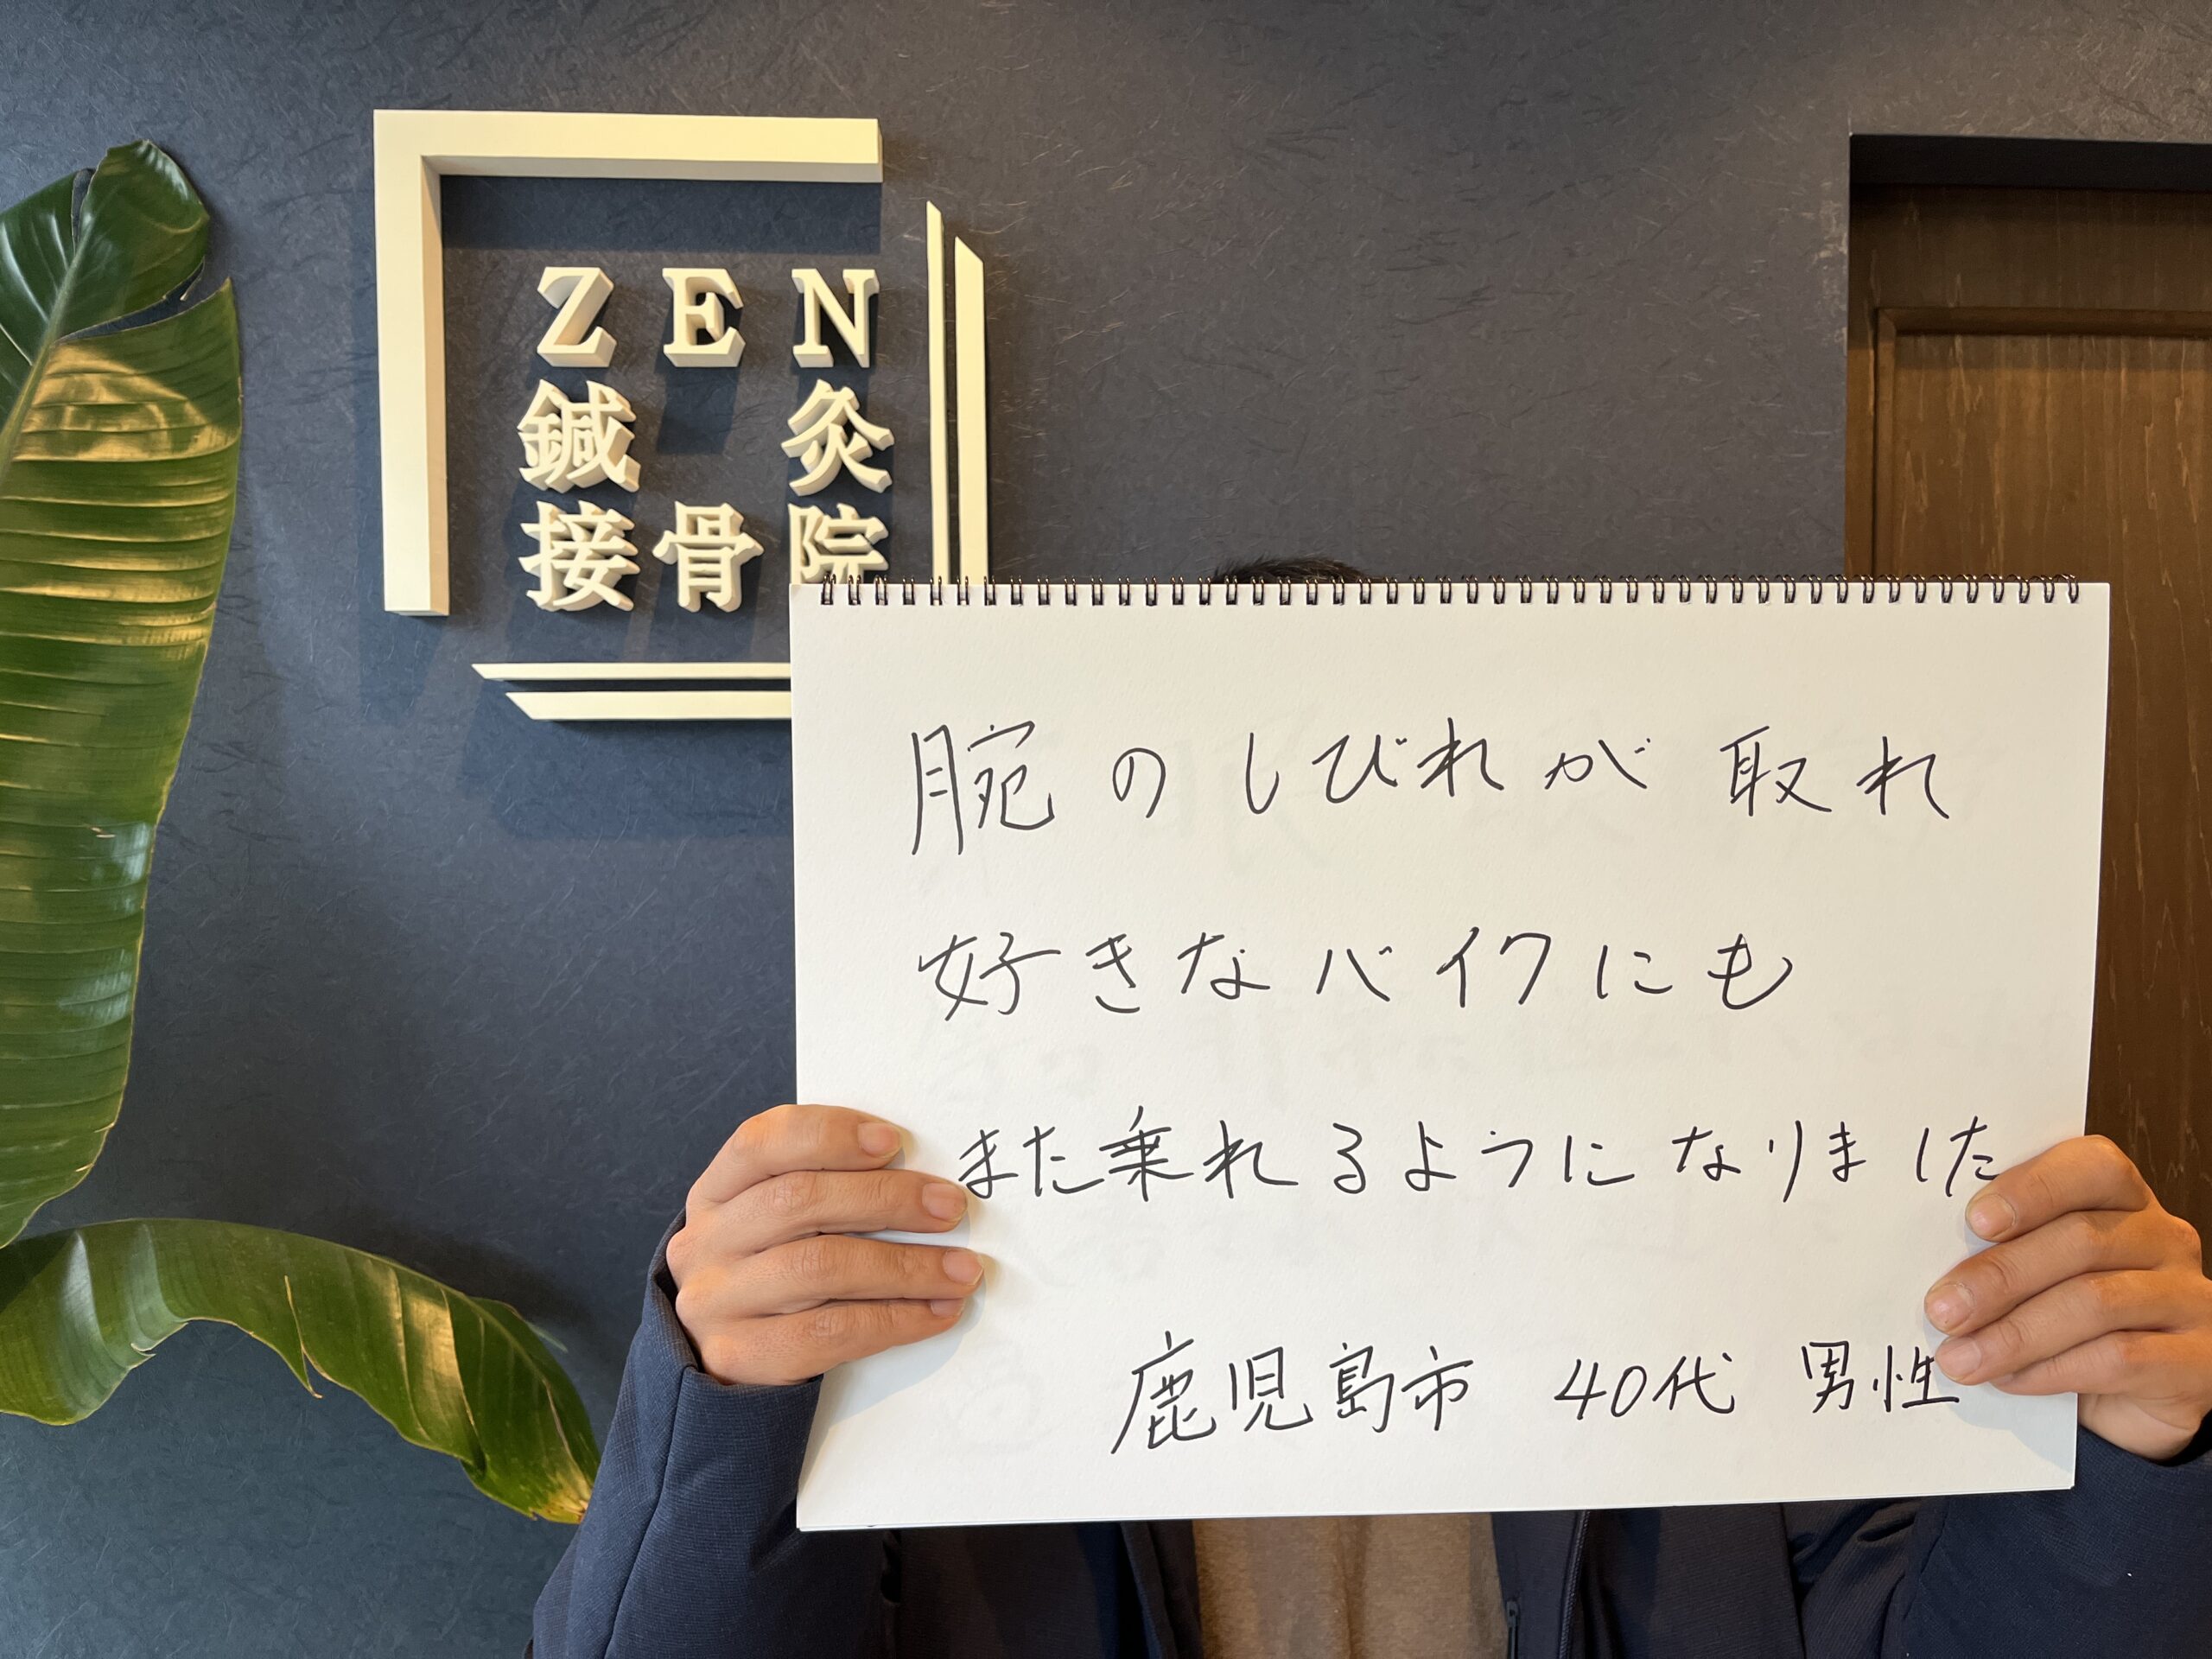 ZEN
鍼灸
接骨院
腕のしびれが取れ
好きなバイクにも
また乗れるようになりました
鹿児島市 40代 男性